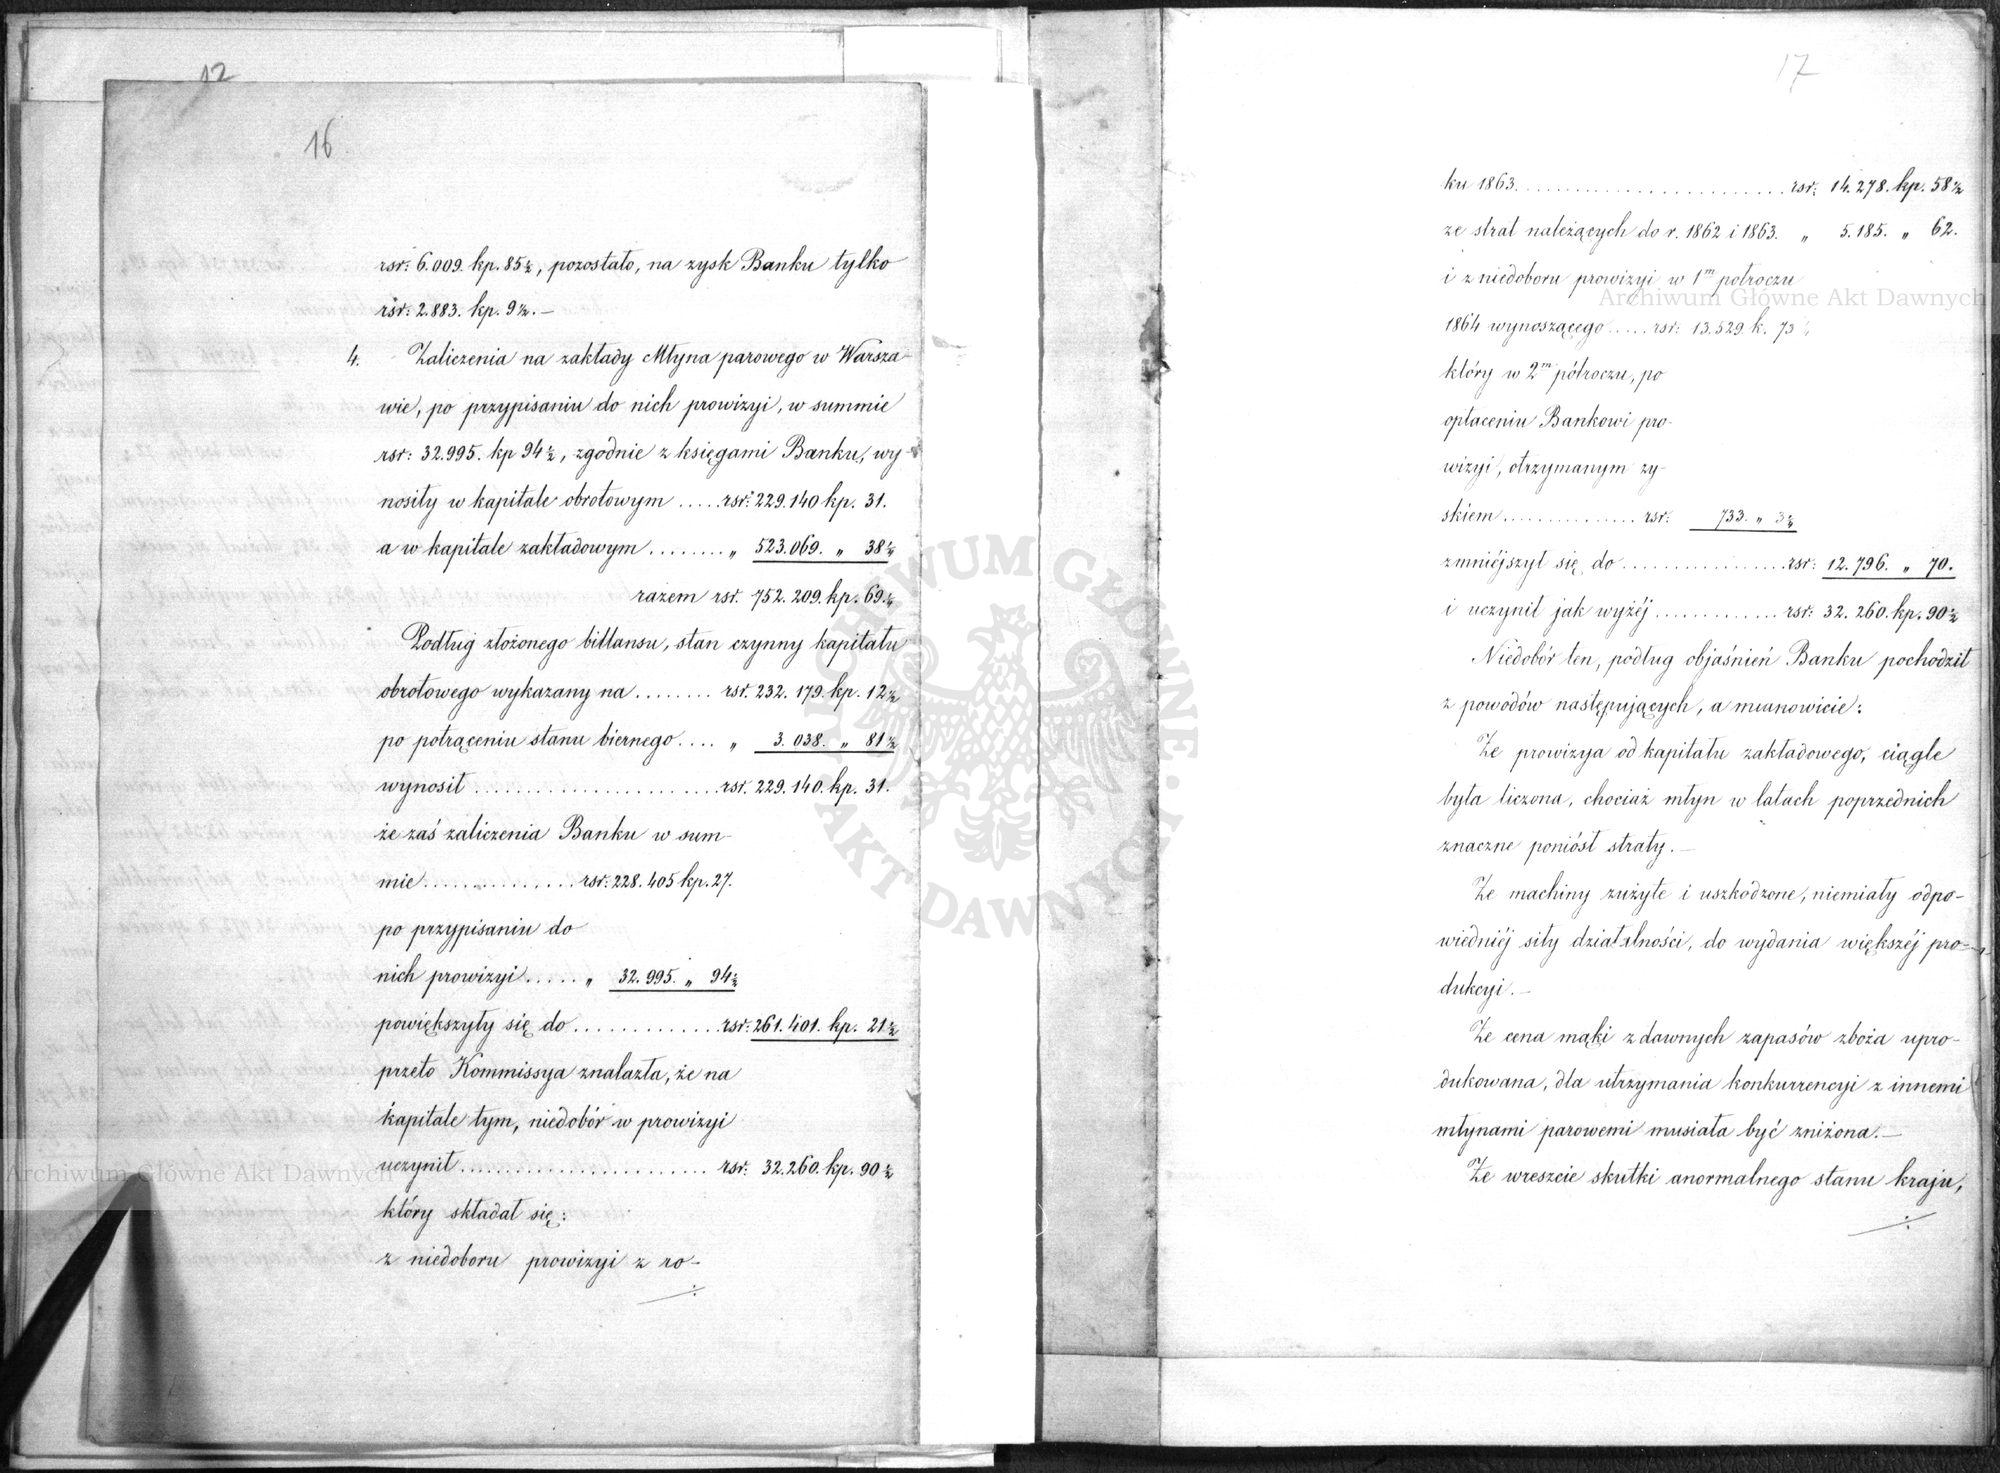 12
16
rsr: 6.009. kp. 85½, pozostało, na zysk Banku tylko
rsr: 2.883. kp. 9½. —
4. Zaliczenia na zakłady Młyna parowego w Warsza-
wie, po przypisaniu do nich prowizyi, w summie
rsr: 32.995. kp 94½, zgodnie z księgami Banku, wy-
nosiły w kapitale obrotowym ..... rsr: 229.140 kp. 31.
a w kapitale zakładowym ........ „ 523.069. „ 38½
razem rsr. 752.209. kp. 69.½
Podług złożonego billansu, stan czynny kapitału
obrotowego wykazany na ........ rsr. 232.179. kp. 12½
po potrąceniu stanu biernego .... „ 3.038. „ 81½
wynosił ........................ rsr. 229.140. kp. 31.
że zaś zaliczenia Banku w sum-
mie .............. rsr: 228.405 kp. 27.
po przypisaniu do
nich prowizyi ..... „ 32.995. „ 94½
powiększyły się do .............. rsr: 261.401. kp. 21½
przeto Kommissya znalazła, że na
kapitale tym, niedobór w prowizyi
uczynił ........................ rsr: 32.260. kp. 90½
który składał się:
z niedoboru prowizyi z ro-
17
ku 1863. .......................... rsr: 14.278. kp. 58½
ze strat należących do r. 1862 i 1863. „ 5.185. „ 62.
i z niedoboru prowizyi w 1m półroczu
1864 wynoszącego ..... rsr: 13.529. k. 73½
który w 2m półroczu, po
opłaceniu Bankowi pro-
wizyi, otrzymanym zy-
skiem ............... rsr: 733. „ 3½
zmniejszył się do ................. rsr: 12.796. „ 70.
i uczynił jak wyżéj ............. rsr: 32.260. kp. 90½
Niedobór ten, podług objaśnień Banku pochodził
z powodów następujących, a mianowicie:
Że prowizya od kapitału zakładowego, ciągle
była liczona, chociaż młyn w latach poprzednich
znaczne poniósł straty. —
Że machiny zużyte i uszkodzone, niemiały odpo-
wiedniéj siły działalności, do wydania większéj pro-
dukcyi. —
Że cena mąki z dawnych zapasów zboża upro-
dukowana, dla utrzymania konkurrencyi z innemi
młynami parowemi musiała być zniżona. —
Że wreszcie skutki anormalnego stanu kraju,
Archiwum Główne Akt Dawnych
Archiwum Główne Akt Dawnych
ARCHIWUM GŁÓWNE AKT DAWNYCH